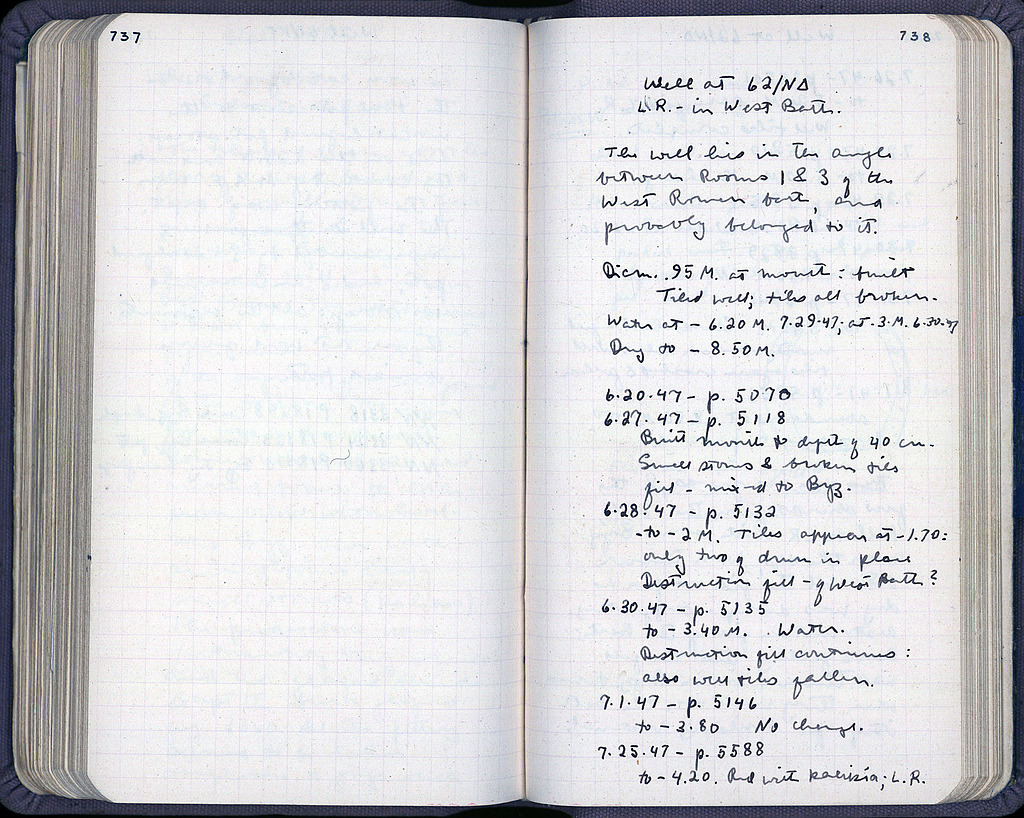 737
738
Well at 62/ΝΔ
L.R. - in West Bath.
The well lies in the angle
between Rooms 1 & 3 of the
West Roman bath, and
probably belonged to it.
Diam. .95 M. at mouth: built
Tiled well; tiles all broken.
Water at - 6.20 M. 7.29.47; at .3 M. 6.30.47
Dry to - 8.50 M.
6.20.47 - p. 5070
6.27.47 - p. 5118
Built mouth to depth of 40 cm.
Small stones & broken tile
fill - mixed to Byz.
6.28.47 - p. 5132
-to -2 M. Tiles appear at -1.70:
only two of drum in place
Destruction fill - of West Bath?
6.30.47 - p. 5135
to - 3.40 M. . Water.
Destruction fill continues:
also well tiles fallen.
7.1.47 - p. 5146
to - 3.80 No change.
7.25.47 - p. 5588
to - 4.20. with L.R.